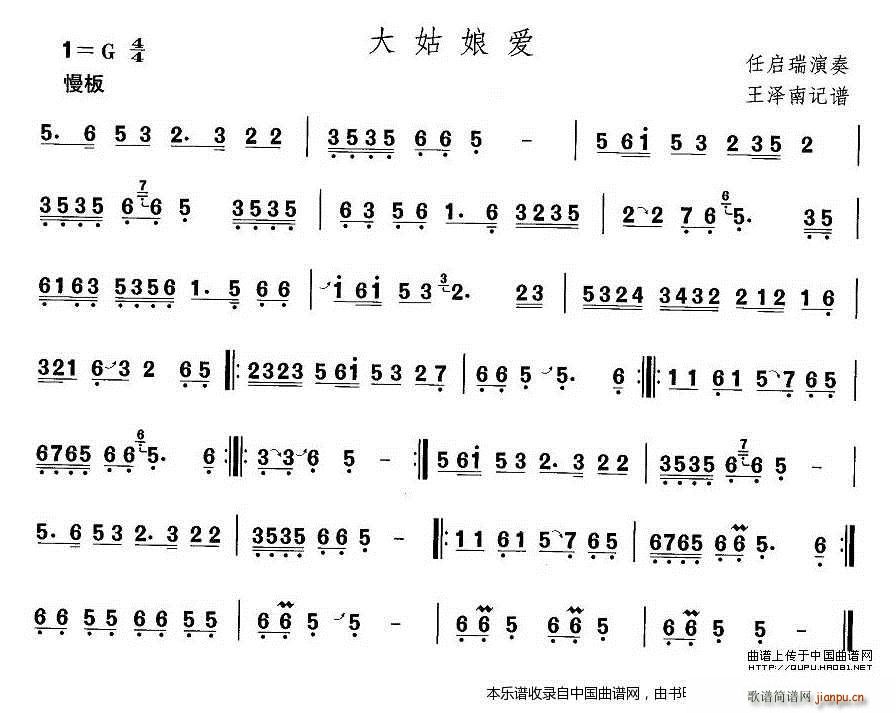 大姑娘爱
1=G 4/4
慢板
任启瑞演奏
王泽南记谱
5. 6 5 3 2. 3 2 2 | 3535 6 6 5 - | 5 6i 5 3 235 2 |
3535 7 6 6 5 3535 | 6 3 5 6 1. 6 3235 | 2 2 7 6 6 5. 35 |
6163 5356 1. 5 6 6 | i 6i 5 3 3 2. 23 | 5324 3432 212 1 6 |
321 6 3 2 6 5 |: 2323 5 6i 5 3 2 7 | 6 6 5 5. 6 :||: 1 1 6 1 5 7 6 5 |
6765 6 6 6 5. 6 :||: 3 3 6 5 - :| 5 6i 5 3 2. 3 2 2 | 3535 7 6 6 5 - |
5. 6 5 3 2. 3 2 2 | 3535 6 6 5 - |: 1 1 6 1 5 7 6 5 | 6765 6 6 5. 6 :|
6 6 5 5 6 6 5 5 | 6 6 5 5 - | 6 6 5 6 6 5 | 6 6 5 5 - |
曲谱上传于中国曲谱网
http://QUPU.HAO81.NET
本乐谱收录自中国曲谱网，由书
歌谱简谱网 jianpu.cn